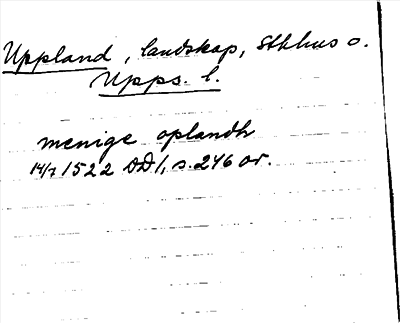 Uppland, landskap, Sthlms o.
Upps. l.
menige oplandh
14/7 1522 DD 1, s. 246 or.